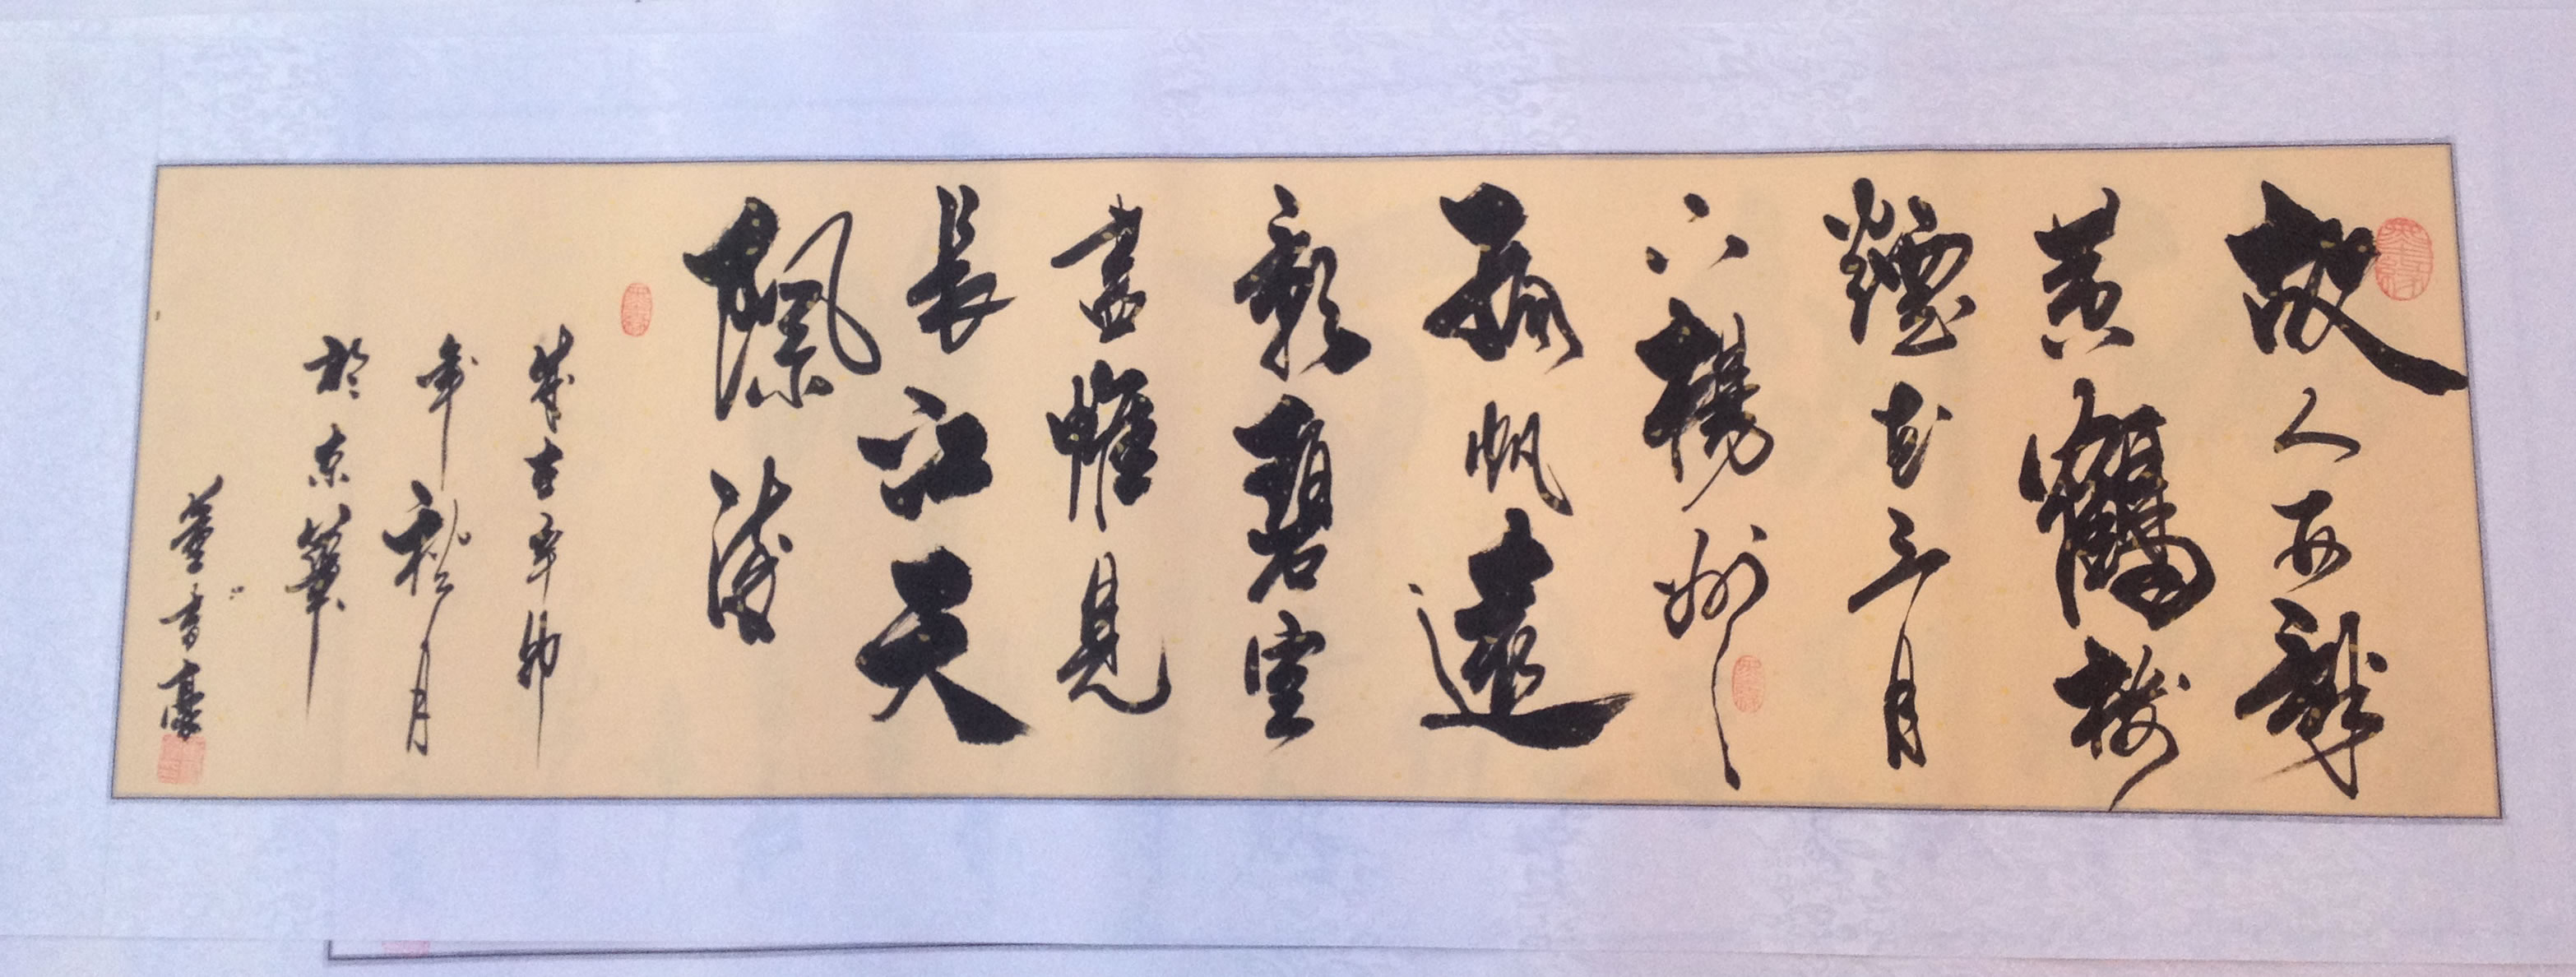 故人西辭
黃鶴樓
煙花三月
下楊州
孤帆遠
影碧空
盡惟見
長江天
際流
歲在辛卯
年秋月
於京華
董書豪